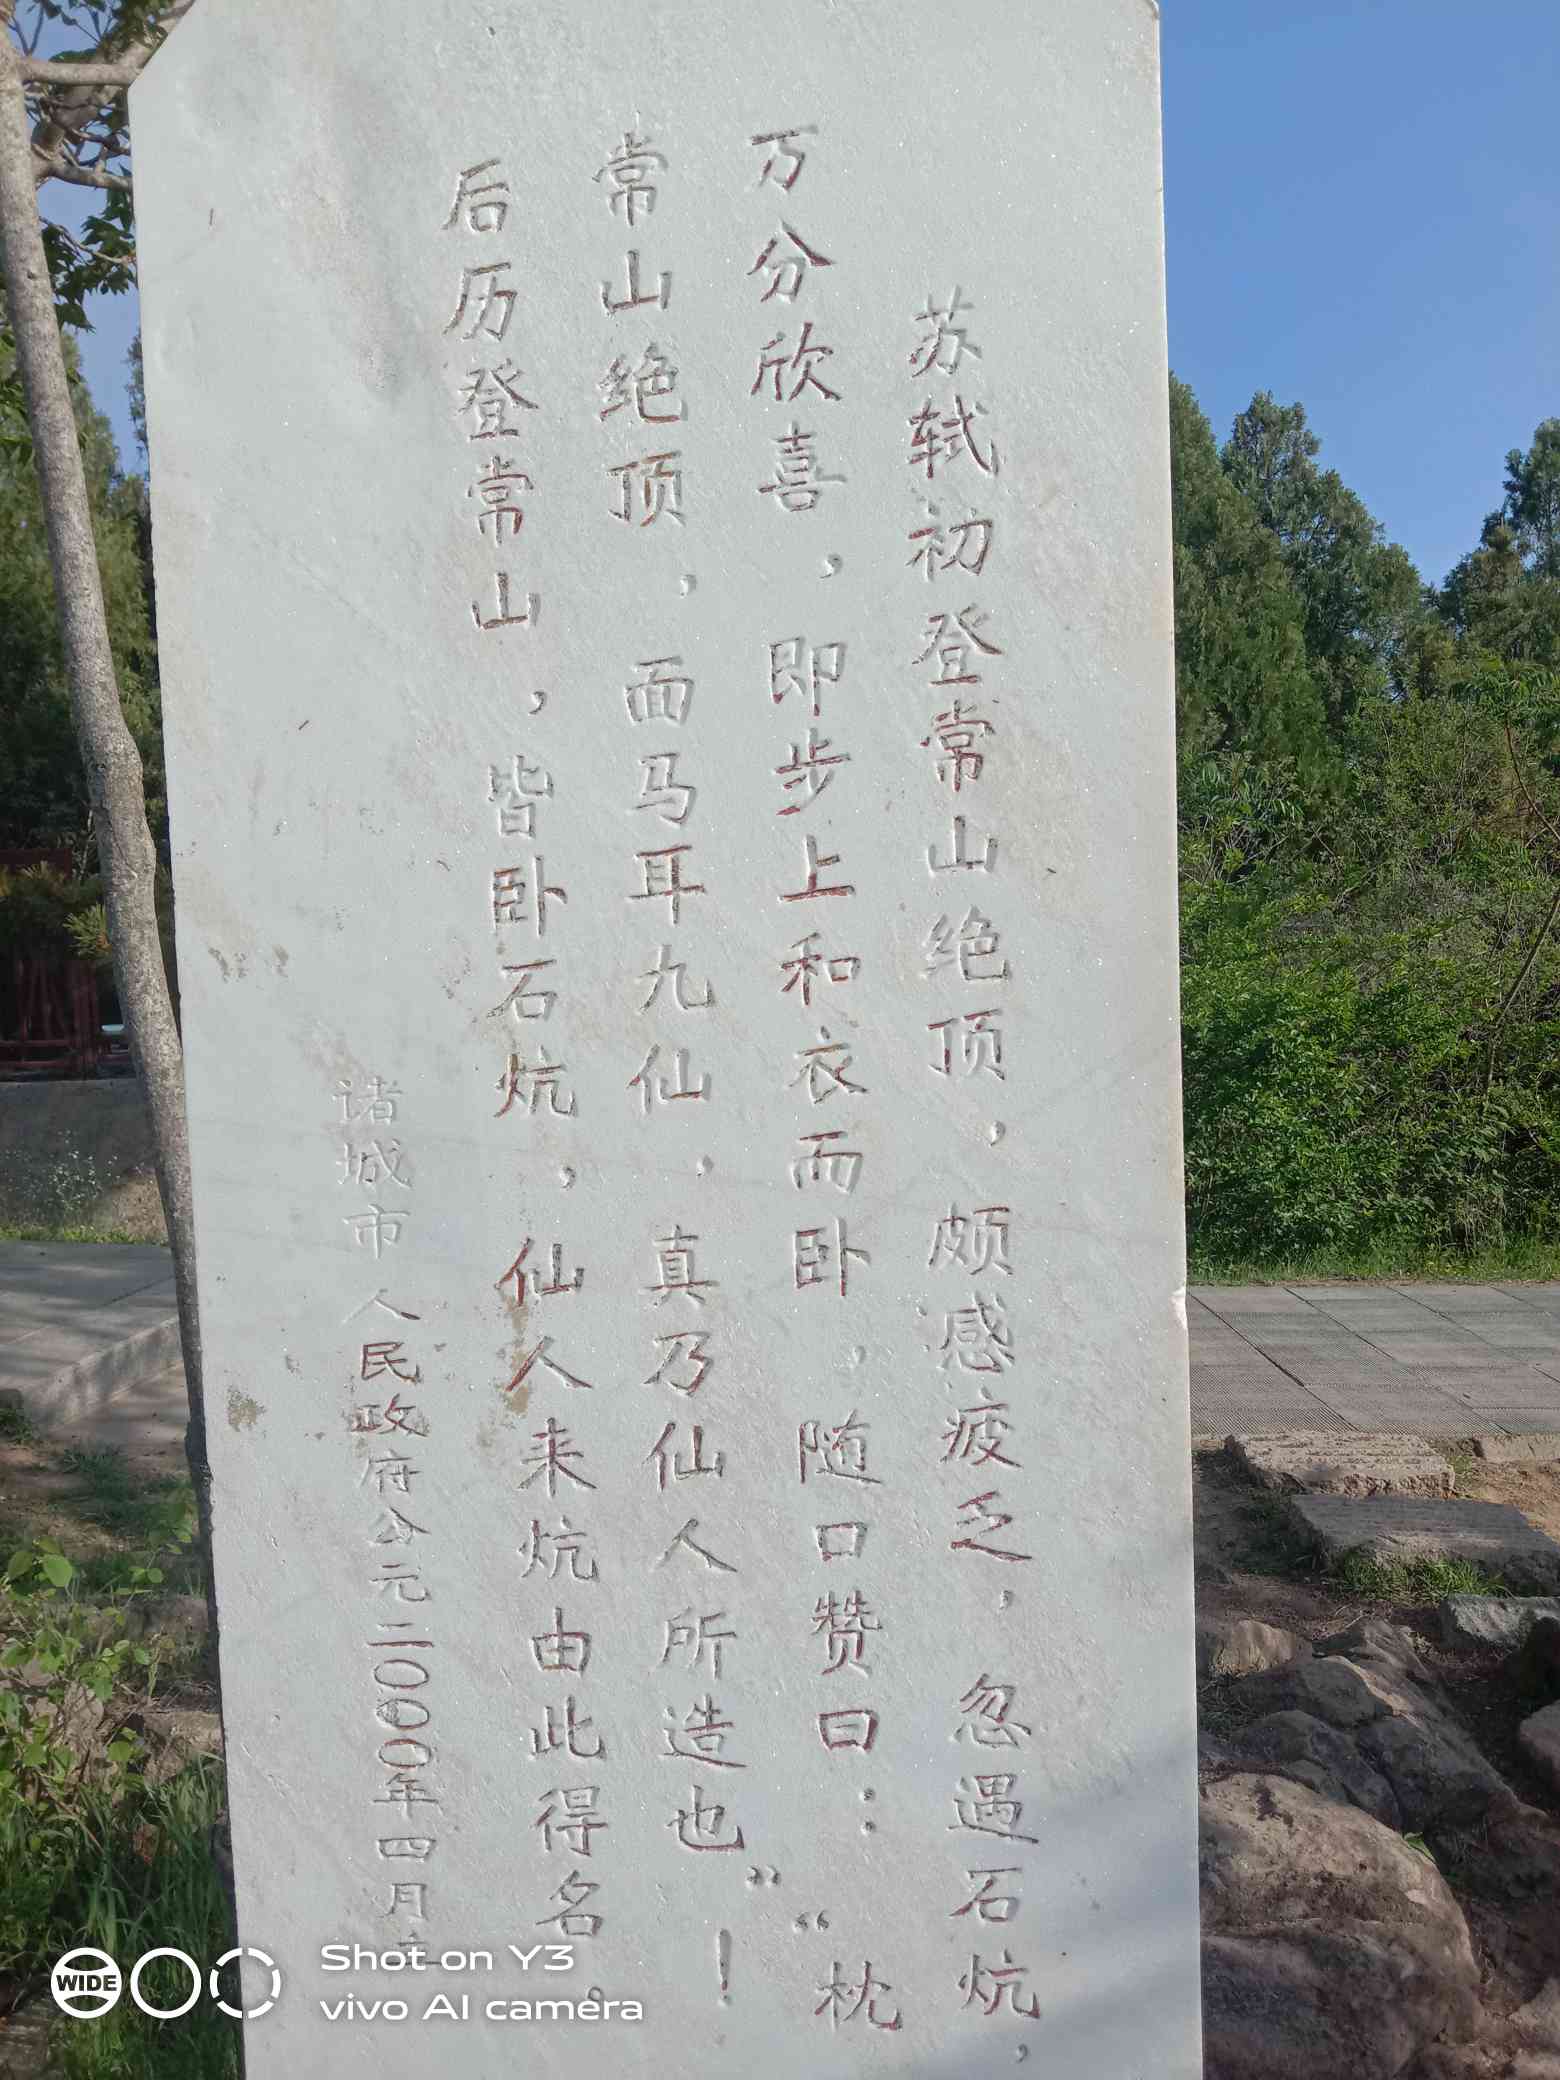 苏轼初登常山绝顶，颇感疲乏，忽遇石炕，
万分欣喜，即步上和衣而卧，随口赞曰：“枕
常山绝顶，面马耳九仙，真乃仙人所造也”！
后历登常山，皆卧石炕，仙人来炕由此得名。
诸城市人民政府公元二〇〇〇年四月立
WIDE
Shot on Y3
vivo AI camera